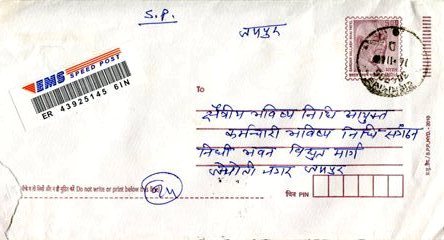 S.P.
जयपुर
EMS
SPEED POST
ER 43925145 6IN
To
क्षेत्रीय भविष्य निधि आयुक्त
कर्मचारी भविष्य निधि संगठन
निधी भवन विद्युत मार्ग
ज्योती नगर जयपुर
Do not write or print below this line
पिन PIN